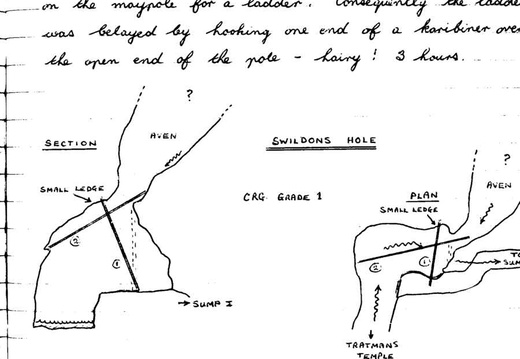 on the maypole for a ladder. Consequently the ladde
was belayed by hooking one end of a karibiner over
the open end of the pole - hairy! 3 hours.
?
SECTION
AVEN
SWILDONS HOLE
SMALL LEDGE
CRG. GRADE 1
PLAN
SMALL LEDGE
?
AVEN
②
①
→ SUMP I
②
①
TO
SUM
TRATMANS
TEMPLE